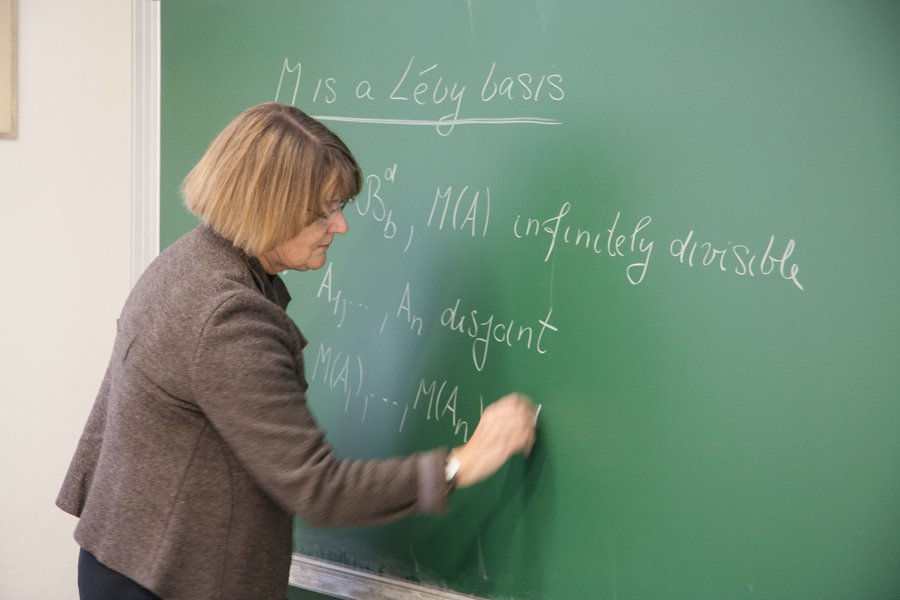 M is a Lévy basis
B_b^d, M(A) infinitely divisible
A_1, ..., A_n disjoint
M(A_1), ..., M(A_n)